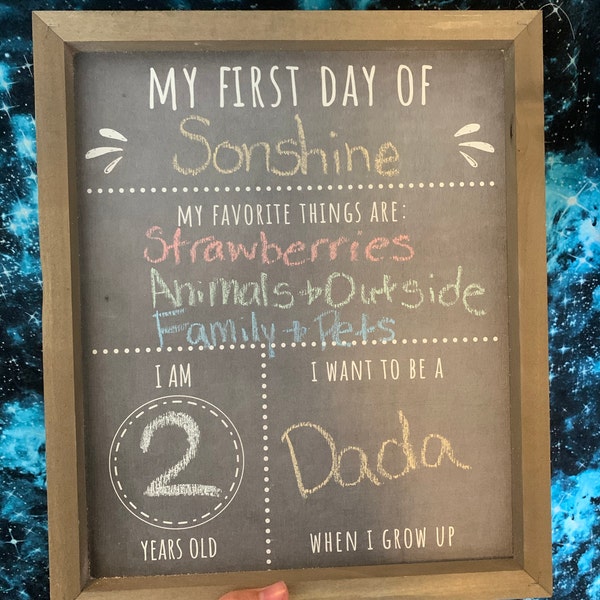 MY FIRST DAY OF
Sonshine
MY FAVORITE THINGS ARE:
Strawberries
Animals + Outside
Family + Pets
I AM
2
YEARS OLD
I WANT TO BE A
Dada
WHEN I GROW UP